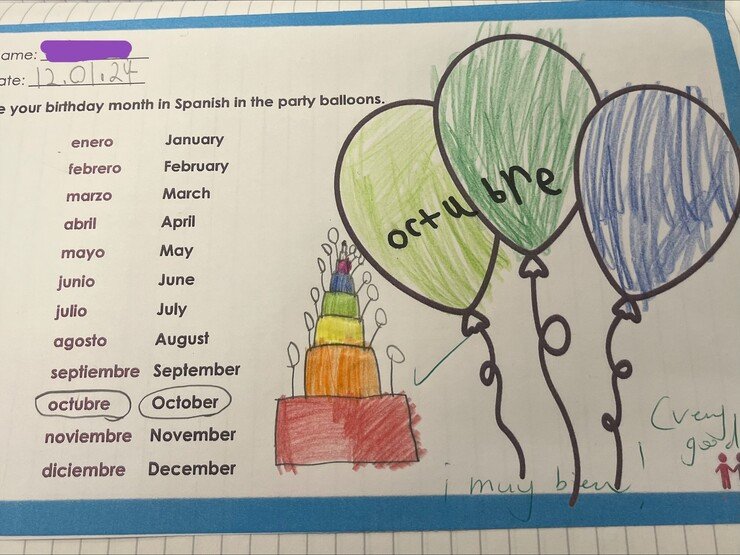 ame:
ate: 12.01.24
e your birthday month in Spanish in the party balloons.
enero January
febrero February
marzo March
abril April
mayo May
junio June
julio July
agosto August
septiembre September
octubre October
noviembre November
diciembre December
octubre
(very
good
¡muy bien!